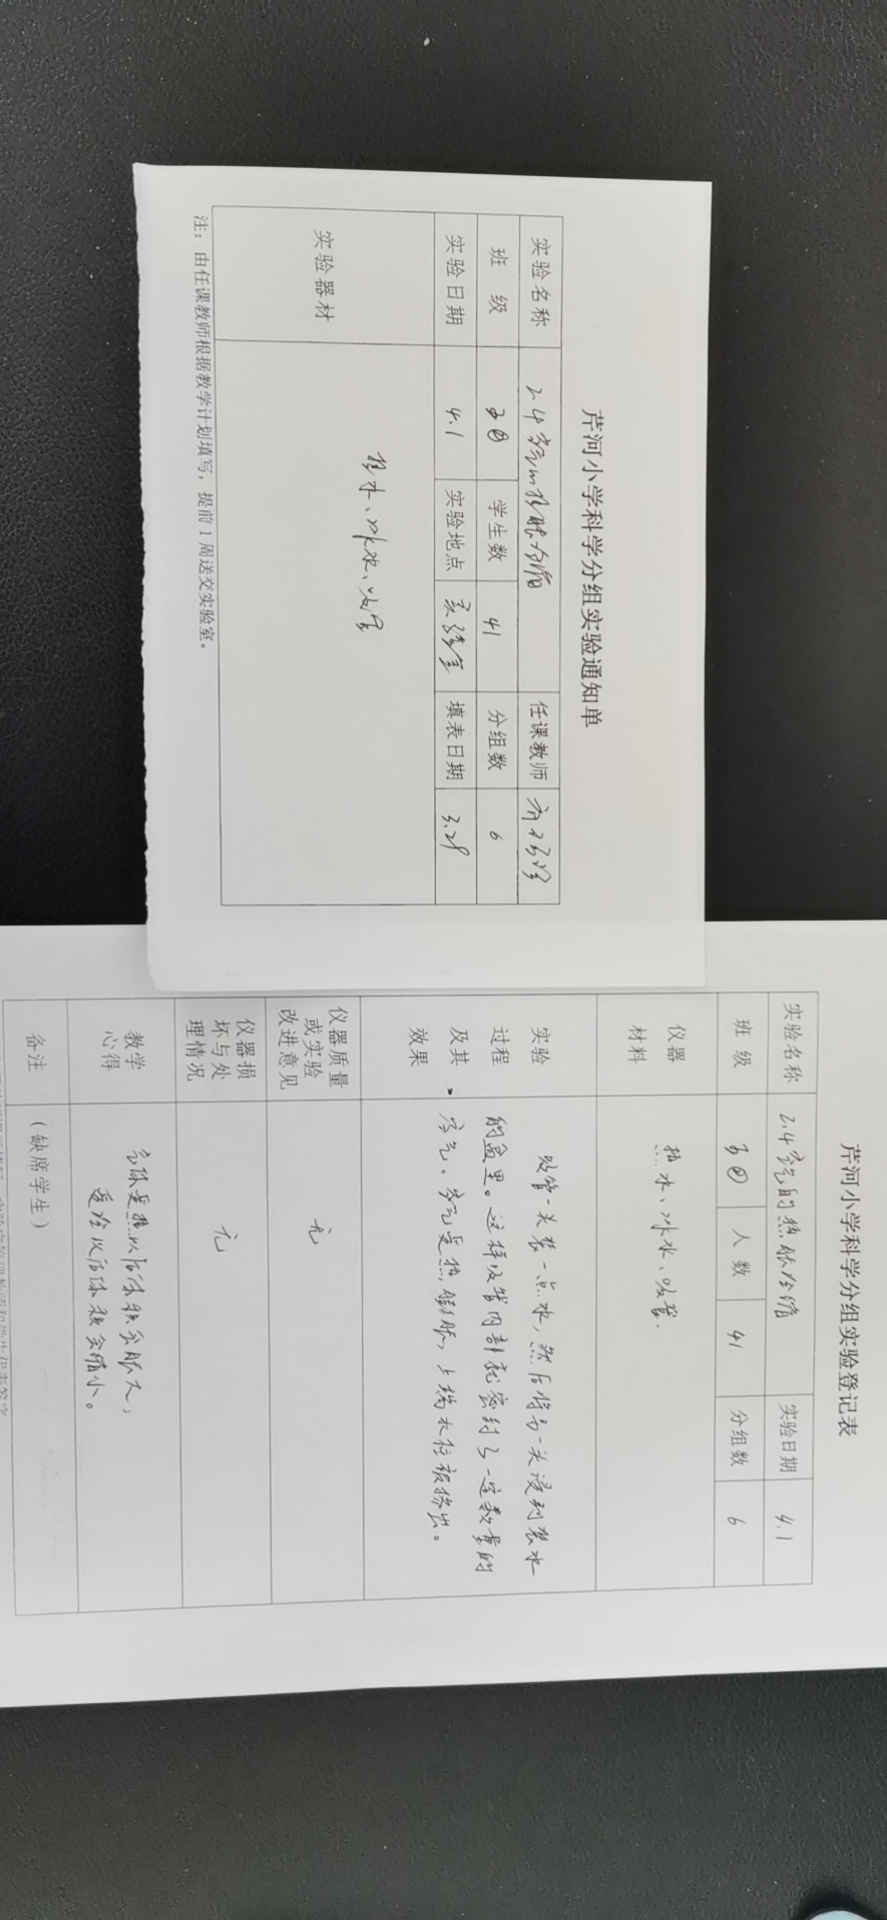 芹河小学科学分组实验通知单
实验名称 2.4空气的热胀冷缩 任课教师
班 级 学生数 41 分组数 6
实验日期 4.1 实验地点 实验室 填表日期 3.29
实验器材 热水、冰水、吸管
注：由任课教师根据教学计划填写，提前1周送交实验室。
芹河小学科学分组实验登记表
实验名称 2.4空气的热胀冷缩 实验日期 4.1
班 级 人 数 41 分组数 6
仪器
材料
热水、冰水、吸管.
实验
过程
及其
效果
吸管一头装一点水，然后将另一头浸到装水
的盒里。这样吸管内部就密封了一定数量的
空气，空气受热，膨胀，上端水位被挤出。
仪器质量
或实验
改进意见
无
仪器损
坏与处
理情况
无
教学
心得
气体受热以后体积会胀大；
遇冷以后体积会缩小。
备注 （缺席学生）